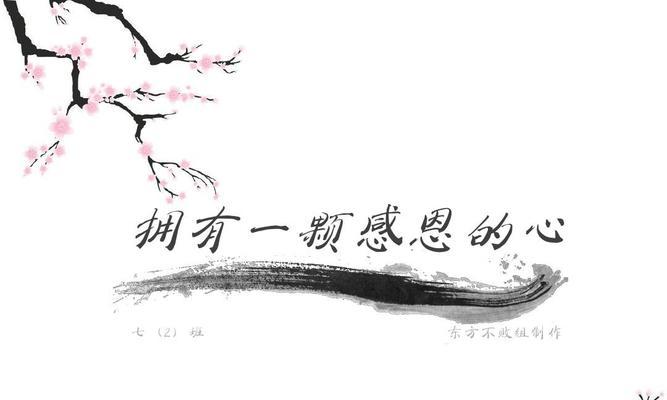 拥有一颗感恩的心
七（2）班
东方不败组制作